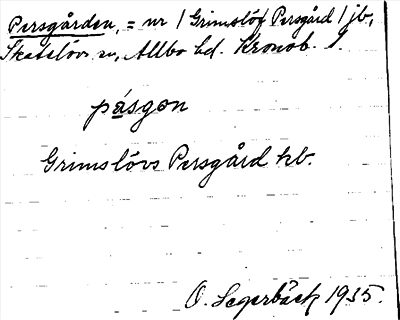 Persgården, = nr 1 Grimslöf Persgård 1 jb,
Skatelövs sn, Allbo hd. Kronob. l.
pásgon
Grimslövs Persgård kb.
O. Segerbäck 1935.